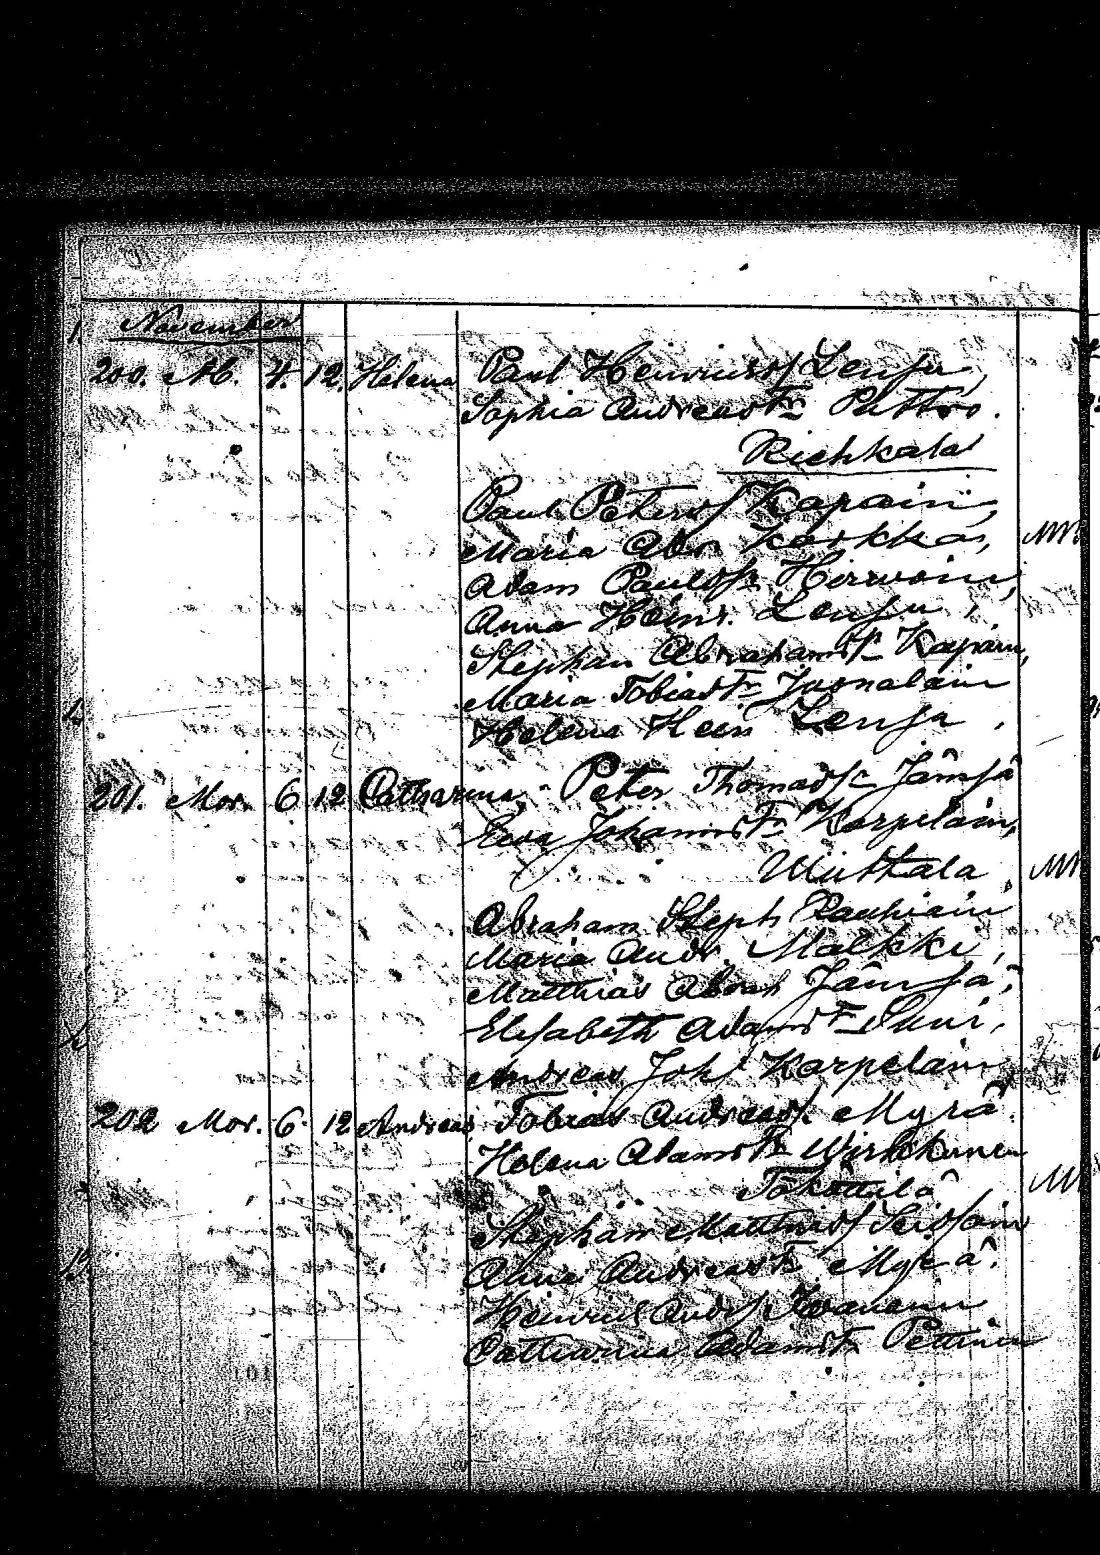 November
200. Ab. 4. 12. Helena Paul Heinricsf Lensu,
Sophia Andreas Fr Puttro.
Richkala
Paul Petersf Kapain,
Maria Abr Karkka,
Adam Paulsf Hirvoin,
Anna Heinr. Lensu,
Stephan Abrahamsf Kapain,
Maria Tobias Fr Jaonalain
Helena Hein Lensu,
201. Mor. 6 12 Catharina, Peter Thomasf Jämsä
Eva Johanns Fr Karpelain,
Uiuttala,
Abraham Steph Rauhiain
Maria Andr. Malkki,
Matthias Abrah Jämsä,
Elisabeth Adams Fr Suni,
Andreas Johsf Karpelain
202 Mor. 6. 12 Andreas Tobias Andreasf. Myrä.
Helena Adams Fr Wirkkunen
Tokottilä
Stephan Matthiasf Seissoin
Anna Andreas Fr Myrä.
Heinric Andsf Ikävain
Catharina Adams Fr Pettinen